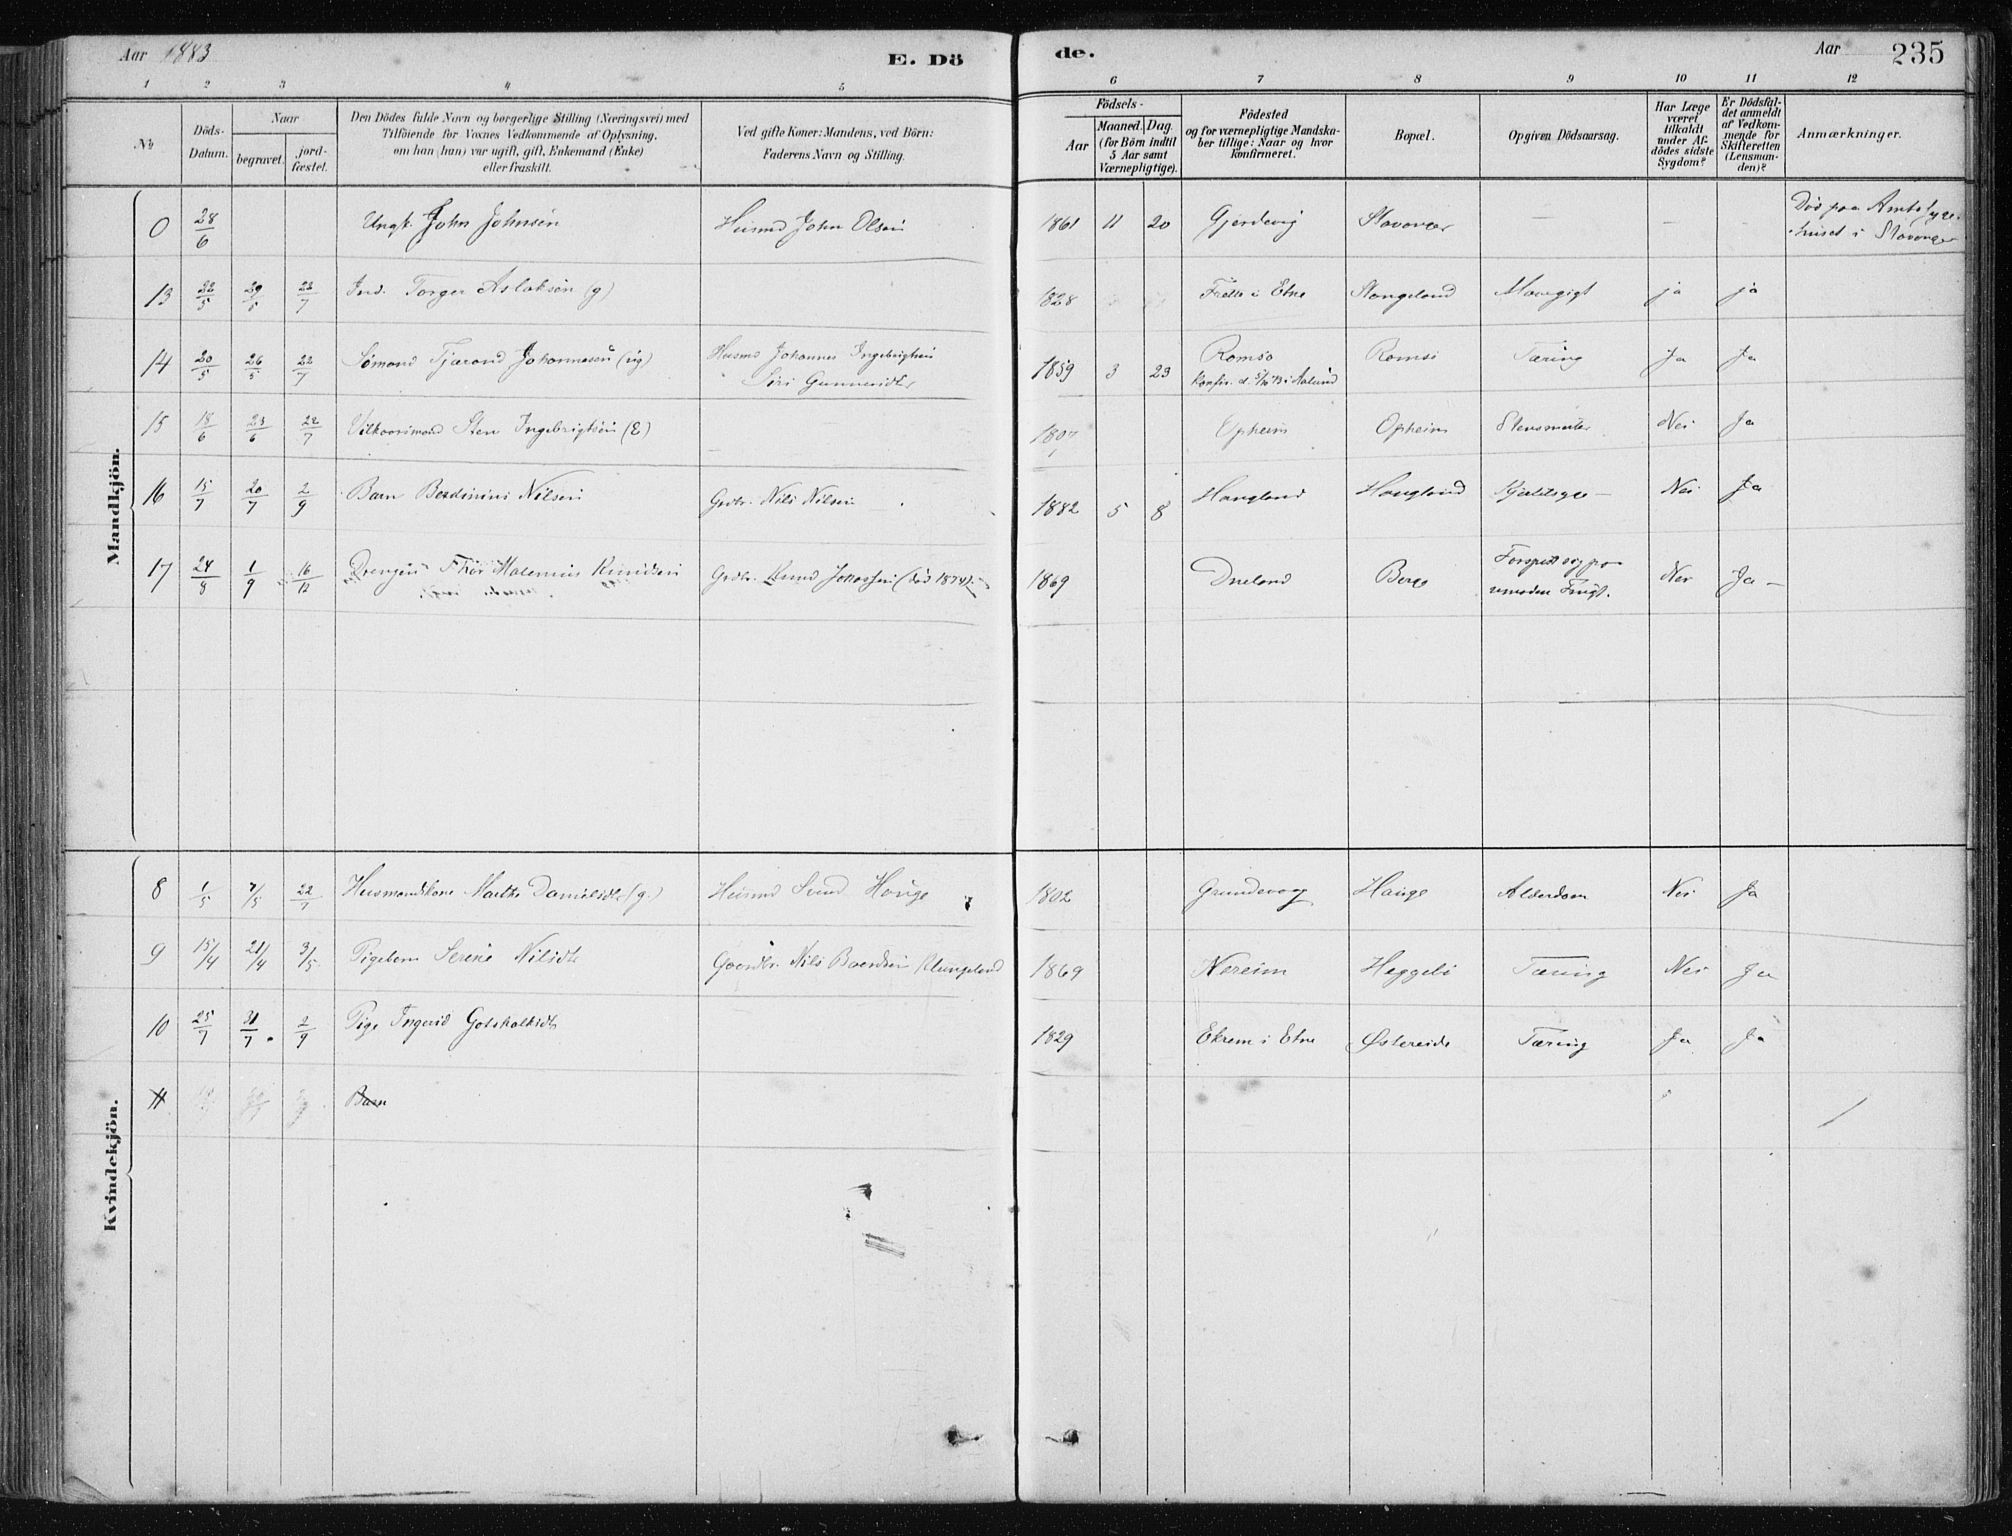 Aar 1883
E. Dö
de.
Aar
235
1 2 3 4 5 6 7 8 9 10 11 12
No
Döds-
Datum.
Naar
begravet.
jord-
fæstet.
Den Dödes fulde Navn og borgerlige Stilling (Næringsvei) med
Tilföiende for Voxnes Vedkommende af Oplysning,
om han (hun) var ugift, gift, Enkemand (Enke)
eller fraskilt.
Ved gifte Koner: Mandens, ved Börn:
Faderens Navn og Stilling.
Födsels-
Aar
Maaned. Dag.
(for Börn indtil
5 Aar samt
Værnepligtige).
Födested
og for værnepligtige Mandska-
ber tillige: Naar og hvor
konfirmeret.
Bopæl.
Opgiven Dödsaarsag.
Har Læge
været
tilkaldt
under Af-
dödes sidste
Sygdom?
Er Dödsfal-
det anmeldt
af Vedkom-
mende for
Skifteretten
(Lensman-
den)?
Anmærkninger.
Mandkjön.
0 28/6 Ungk. John Johnsen Husmd John Olsen 1861 11 20 Gjerdevig Stavanger — — — Död paa Amtssyge-
huset i Stavanger
13 22/5 29/5 22/7 Ind. Torger Aslaksen (g) 1828 Frette i Etne Stangeland Mavegigt ja ja
14 20/5 26/5 22/7 Sømand Tjærand Johannesen (ug) Husmd Johannes Ingebrigtsen
Siri Gunnersdtr 1859 3 23 Romsö Romsö Tæring Ja Ja
15 18/6 23/6 22/7 Vilkaarsmand Sten Ingebrigtsen (E) 1807 Opheim Opheim Nei Ja
16 15/7 20/7 2/9 Barn Berdinius Nilsen Grdbr. Nils Nilsen 1882 5 8 Haugland Haugland Kjertelsyge — Nei Ja
17 24/8 1/9 16/12 Drengen Thor Malenius Knudsen Grdbr. Knud Johnssen (död 1874) 1869 Dueland Berge Forspist sig paa
umoden Frugt. Nei Ja —
Kvindekjön.
8 1/5 7/5 22/7 Husmandskone Marthe Danielsdtr (g.) Husmd Svend Hauge 1802 Grundevaag Hauge Alderdom Nei Ja
9 15/4 21/4 3/5 Pigebarn Serine Nilsdtr Gaardbr. Nils Baardsen Klungeland 1869 Nereim Heggelö Tæring Nei Ja
10 25/7 31/7 2/9 Pige Ingerid Gotskalksdtr 1829 Ekrem i Etne Østereide Tæring Ja Ja
11 Barn